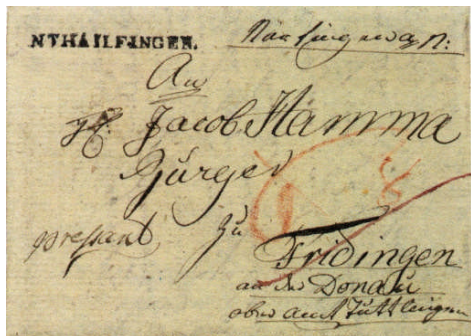 NTHÄILFINGEN.
An
Jacob Hamma
Bürger
pressant, zu
Fridingen
an der Donau
ober amt Tuttlingen